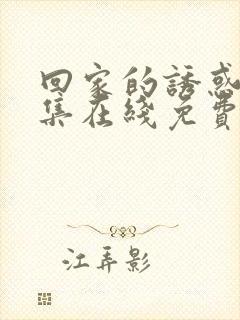 回家的誘惑
集在綫免費
江弄影